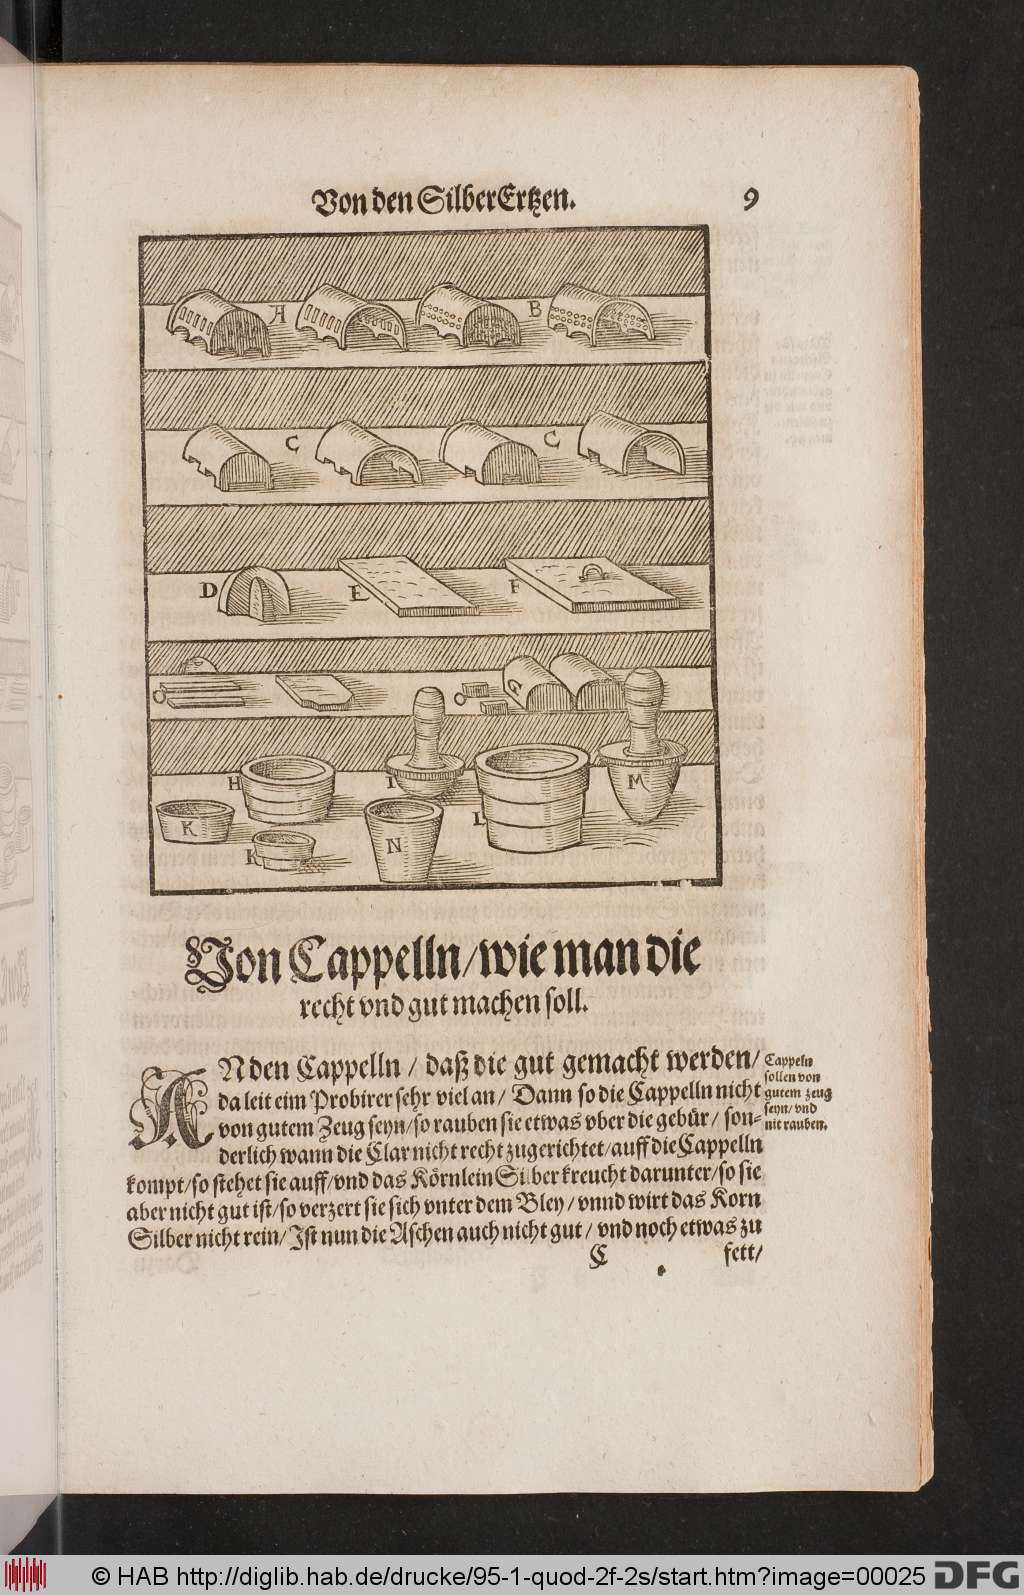 Von den SilberErtzen.
9
A
B
C
C
D
E
F
H
I
K
K
L
M
N
Von Cappelln/wie man die
recht vnd gut machen soll.
ANden Cappelln / daß die gut gemacht werden/
da leit eim Probirer sehr viel an/ Dann so die Cappelln nicht
von gutem Zeug seyn/so rauben sie etwas vber die gebür/ son-
derlich wann die Clar nicht recht zugerichtet/auff die Cappelln
kompt/so stehet sie auff/vnd das Körnlein Silber kreucht darunter/so sie
aber nicht gut ist/so verzert sie sich vnter dem Bley/ vnnd wirt das Korn
Silber nicht rein/Ist nun die Aschen auch nicht gut/ vnd noch etwas zu
Cappeln
sollen von
gutem zeug
seyn/vnd
nit rauben.
C
fett/
© HAB http://diglib.hab.de/drucke/95-1-quod-2f-2s/start.htm?image=00025
DFG